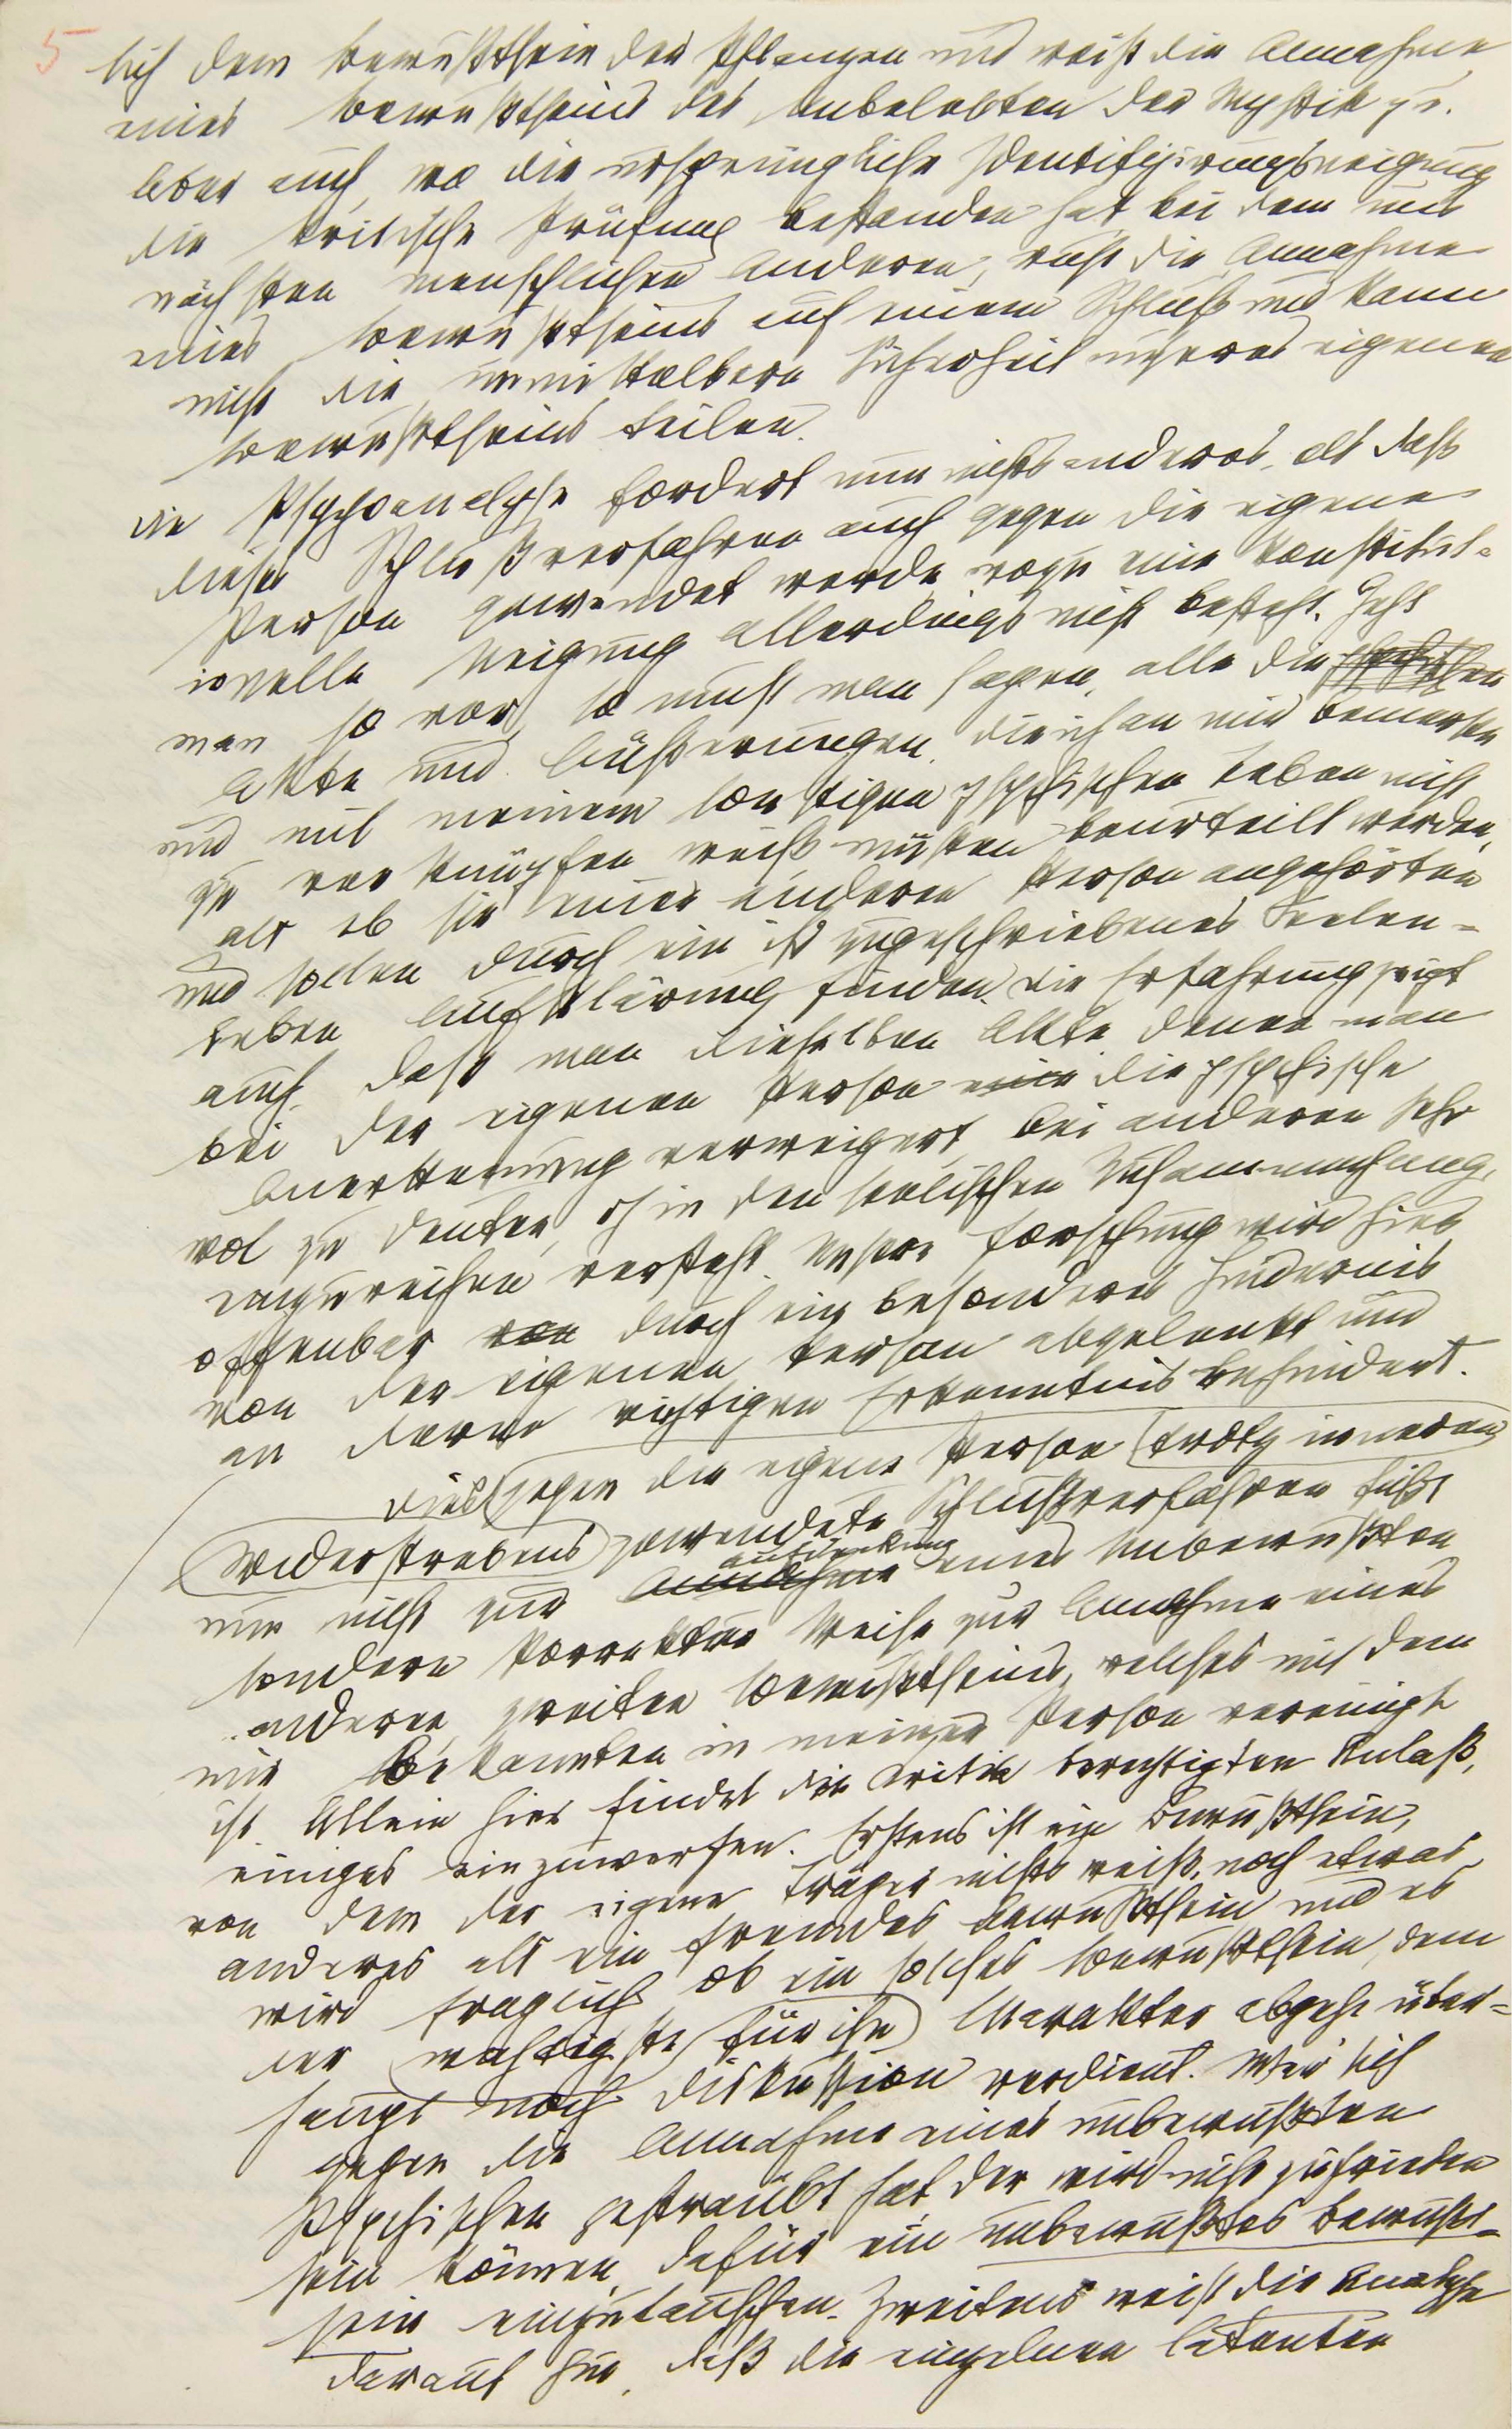 5
lich dem Bewußtsein der Pflanzen und weist die Annahme
eines Bewußtseins des Unbelebten der Mystik zu.
Aber auch, wo die ursprüngliche Identifizirungsneigung
die kritische Prüfung bestanden hat, bei dem uns
nächsten menschlichen Anderen, ruht die Annahme
eines Bewußtseins auf einem Schluß und kann
nicht die unmittelbare Sicherheit unseres eigenen
Bewußtseins teilen.
Die Psychoanalyse fordert nun nichts anderes, als daß
dieses Schlußverfahren auch gegen die eigene
Person gewendet werde, wozu eine konstitut-
ionelle Neigung allerdings nicht besteht. Geht
man so vor, so muß man sagen, alle die
Akte und Äußerungen, die ich an mir bemerke
und mit meinem sonstigen psychischen Leben nicht
zu verknüpfen weiß, müssen beurteilt werden,
als ob sie einer anderen Person angehörten
und sollen durch ein ihr zugeschriebenes Seelen-
leben Aufklärung finden. Die Erfahrung zeigt
auch, daß man dieselben Akte, denen man
bei der eigenen Person die psychische
Anerkennung verweigert, bei anderen sehr
wol zu deuten, dh in den seelischen Zusammenhang
einzureihen versteht. Unsere Forschung wird hier
offenbar von durch ein besonderes Hindernis
von der eigenen Person abgelenkt und
an deren richtigen Erkenntnis behindert.
Dies gegen die eigene Person trotz inneren
Widerstrebens gewendete Schlußverfahren führt
nun nicht zur Annahme Aufdeckung eines Unbewußten
sondern korrekter Weise zur Annahme eines
anderen, zweiten Bewußtseins, welches mit dem
mir Bekannten in meiner Person vereinigt
ist. Allein hier findet die Kritik berechtigten Anlaß,
einiges einzuwerfen. Erstens ist ein Bewußtsein,
von dem der eigene Träger nichts weiß, noch etwas
anderes als ein fremdes Bewußtsein und es
wird fraglich, ob ein solches Bewußtsein, dem
der wichtigste für ihn Charakter abgeht über-
haupt noch Diskussion verdient. Wer sich
gegen die Annahme eines unbewußten
Psychischen gesträubt hat, der wird nicht zufrieden
sein können, dafür ein unbewußtes Bewußt-
sein einzutauschen. Zweitens weist die Analyse
darauf hin, daß die einzelnen latenten